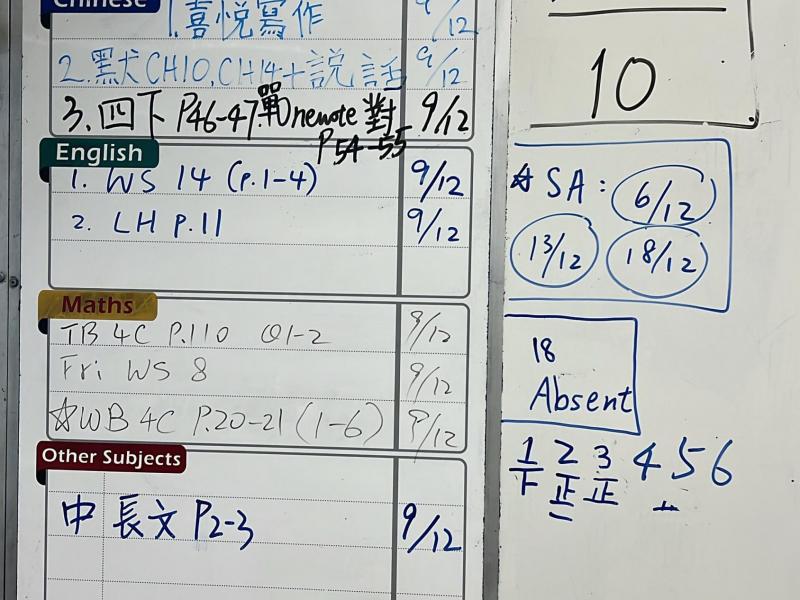 Chinese
1. 喜悅寫作 9/12
2. 默犬CH10, CH14+説話 9/12
3. 四下 P46-47, 單Onenote 對 9/12
P54-55
English
1. WS 14 (p.1-4) 9/12
2. LH P.11 9/12
Maths
TB 4C P.110 Q1-2 9/12
Fri WS 8 9/12
☆WB 4C P.20-21 (1-6) 9/12
Other Subjects
中 長文 P2-3 9/12
10
☆ SA: 6/12
13/12 18/12
18
Absent
1 2 3 4 5 6
正 正